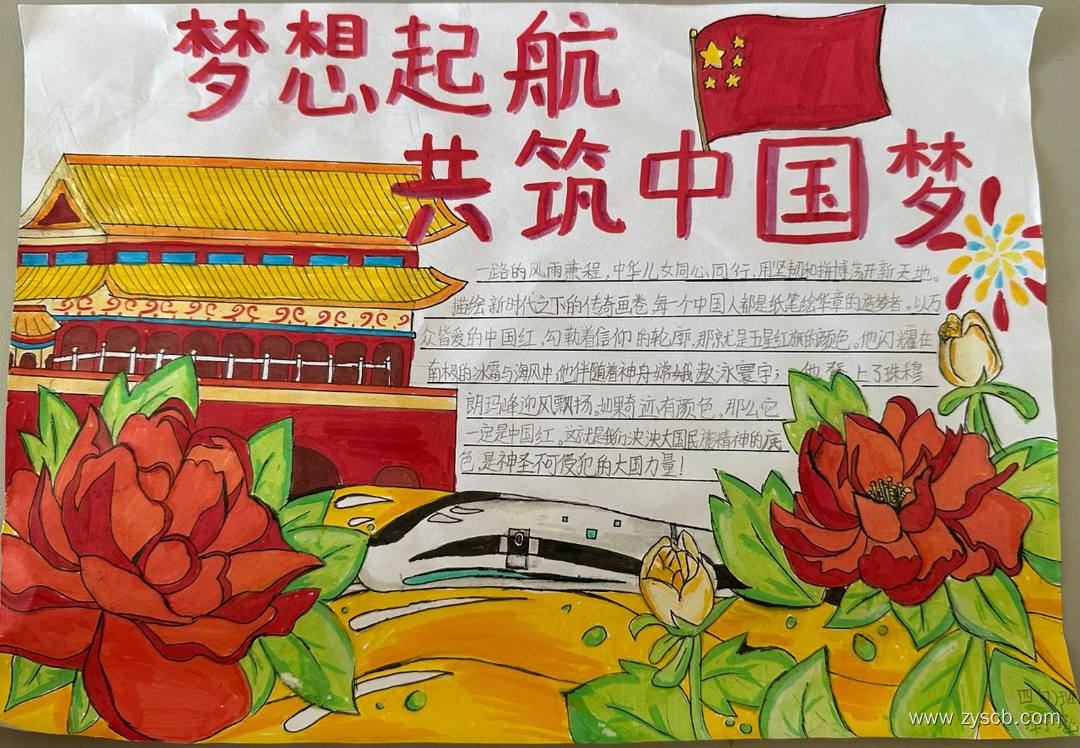 梦想起航
共筑中国梦
一路的风雨兼程,中华儿女同心同行,用坚韧和拼搏荡开新天地。
描绘新时代之下的传奇画卷,每一个中国人都是纸笔绘华章的造梦者。以万
众皆爱的中国红,勾勒着信仰的轮廓,那就是五星红旗的颜色。他闪耀在
南极的冰霜与海风中,他伴随着神舟嫦娥遨泳寰宇;他登上了珠穆
朗玛峰迎风飘扬。如果奇迹有颜色,那么它
一定是中国红。这就是我们泱泱大国民族精神的底
色,是神圣不可侵犯的大国力量!
www.zyscb.com